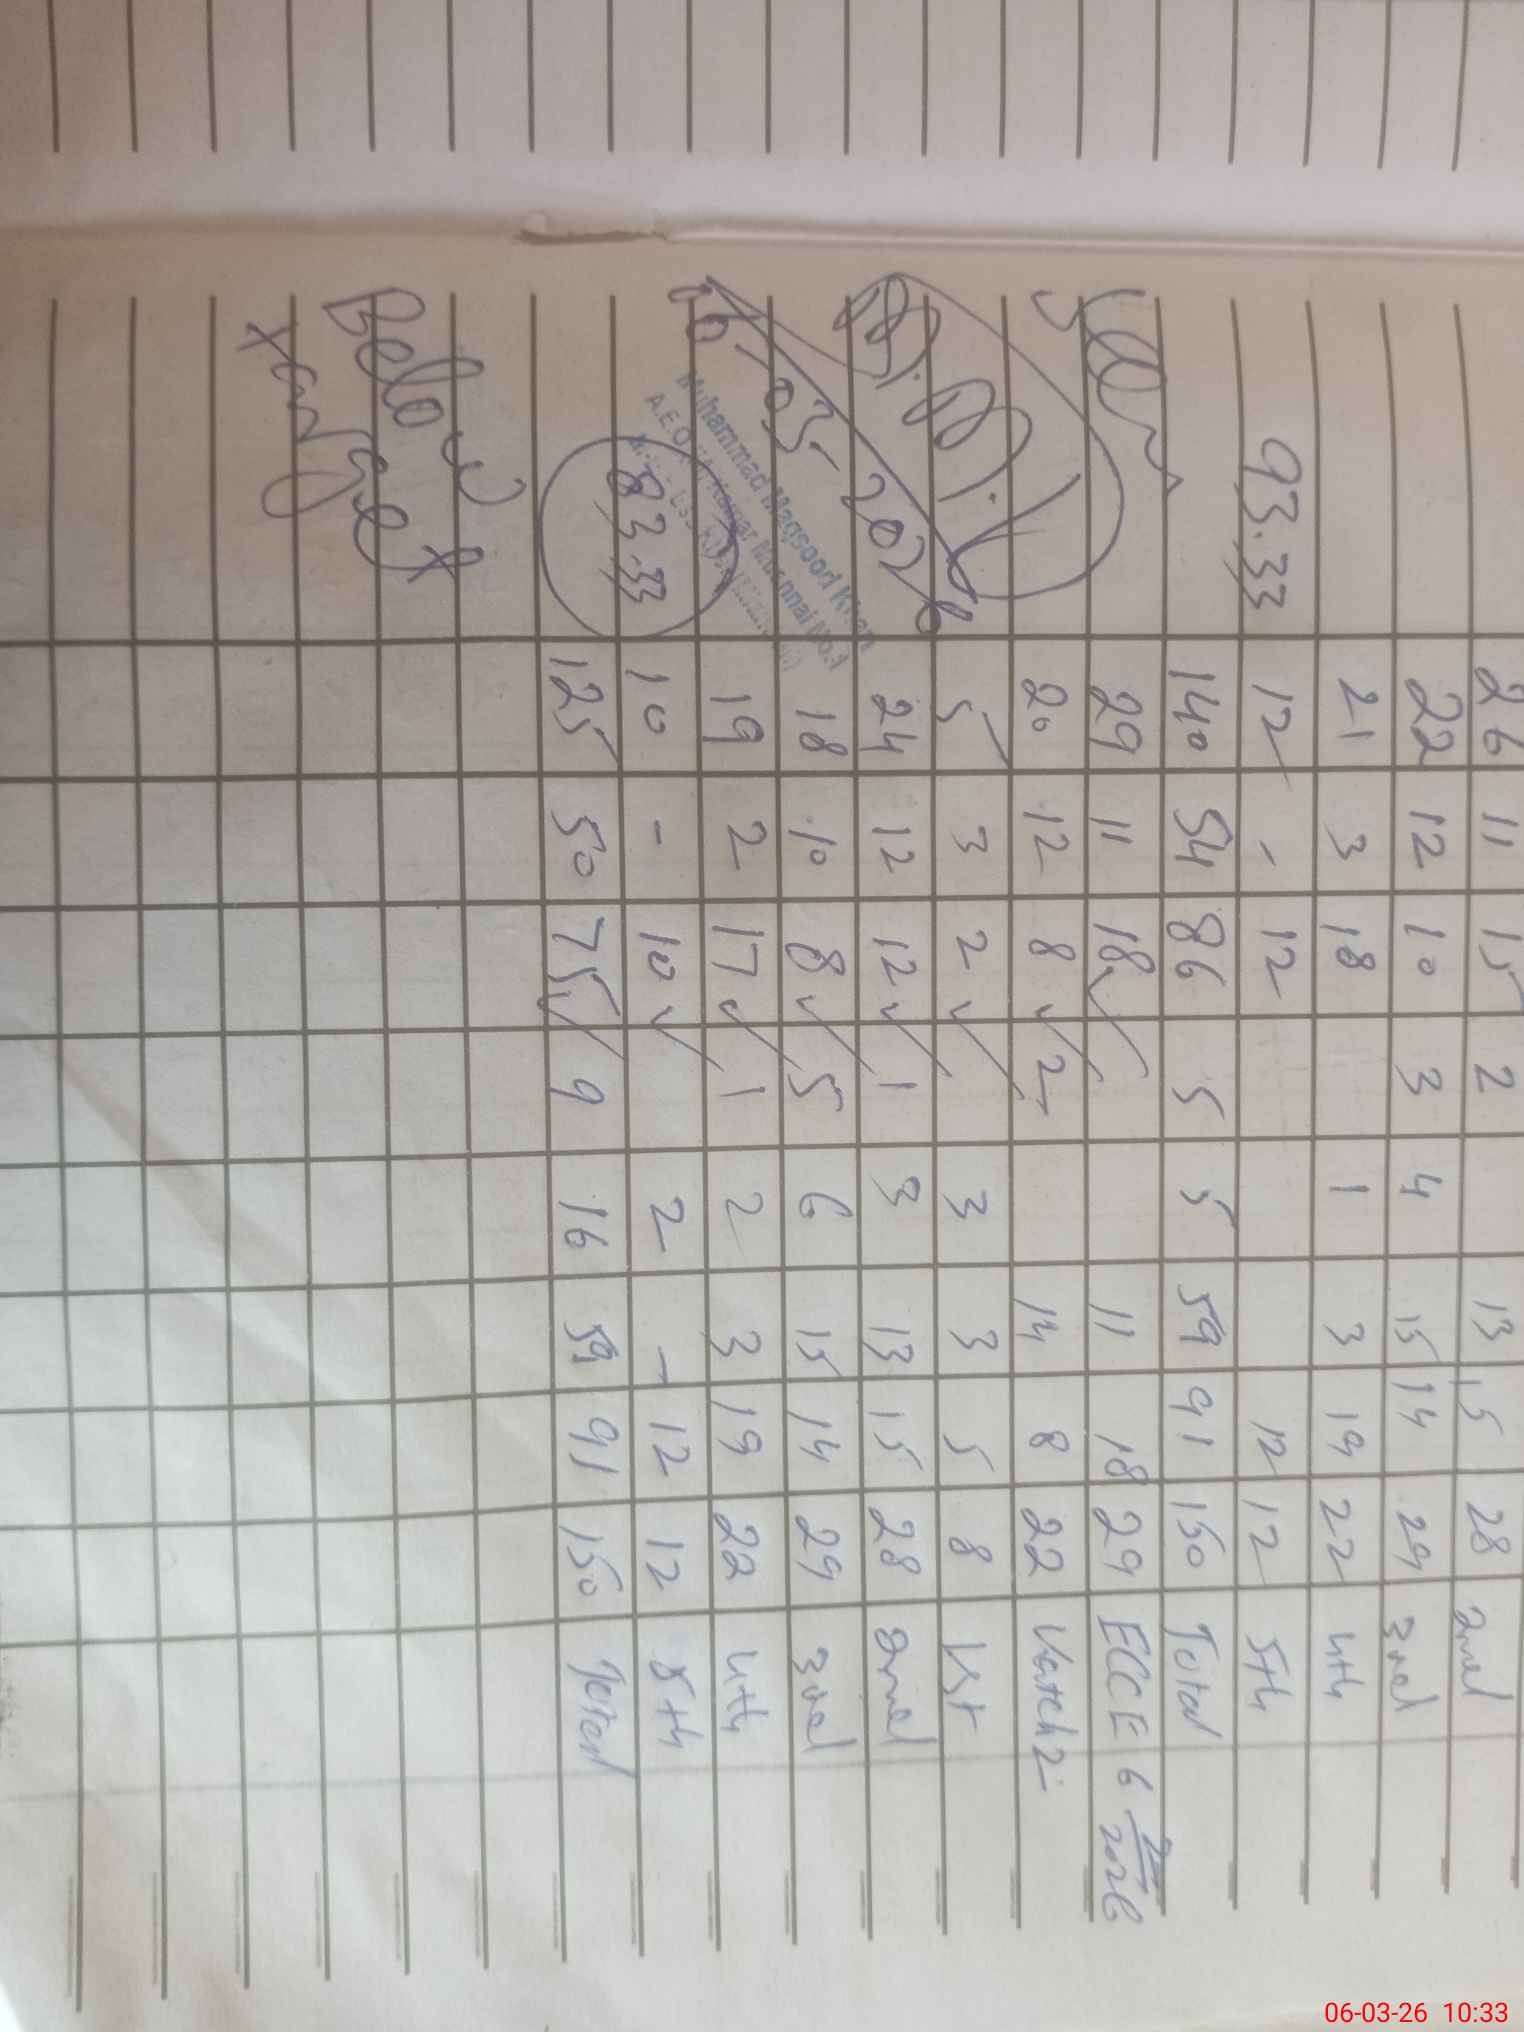 26 11 15 2 13 15 28 2nd
22 12 10 3 4 15 14 29 3rd
21 3 18 1 3 19 22 4th
93.33 12 - 12 12 12 5th
140 54 86 5 5 59 91 150 Total
29 11 18 ✓ 11 18 29 ECCE 6 2026
20 12 8 ✓ 2 14 8 22 Katch 2
5 3 2 ✓ 3 3 5 8 1st
24 12 12 ✓ 1 3 13 15 28 2nd
18 10 8 ✓ 5 6 15 14 29 3rd
06-03-2026 19 2 17 ✓ 1 2 3 19 22 4th
Muhammad Maqsood Khan
A.E.O
83.33 10 - 10 ✓ 2 - 12 12 5th
125 50 75 ✓ 9 16 59 91 150 Total
Below
target
06-03-26 10:33